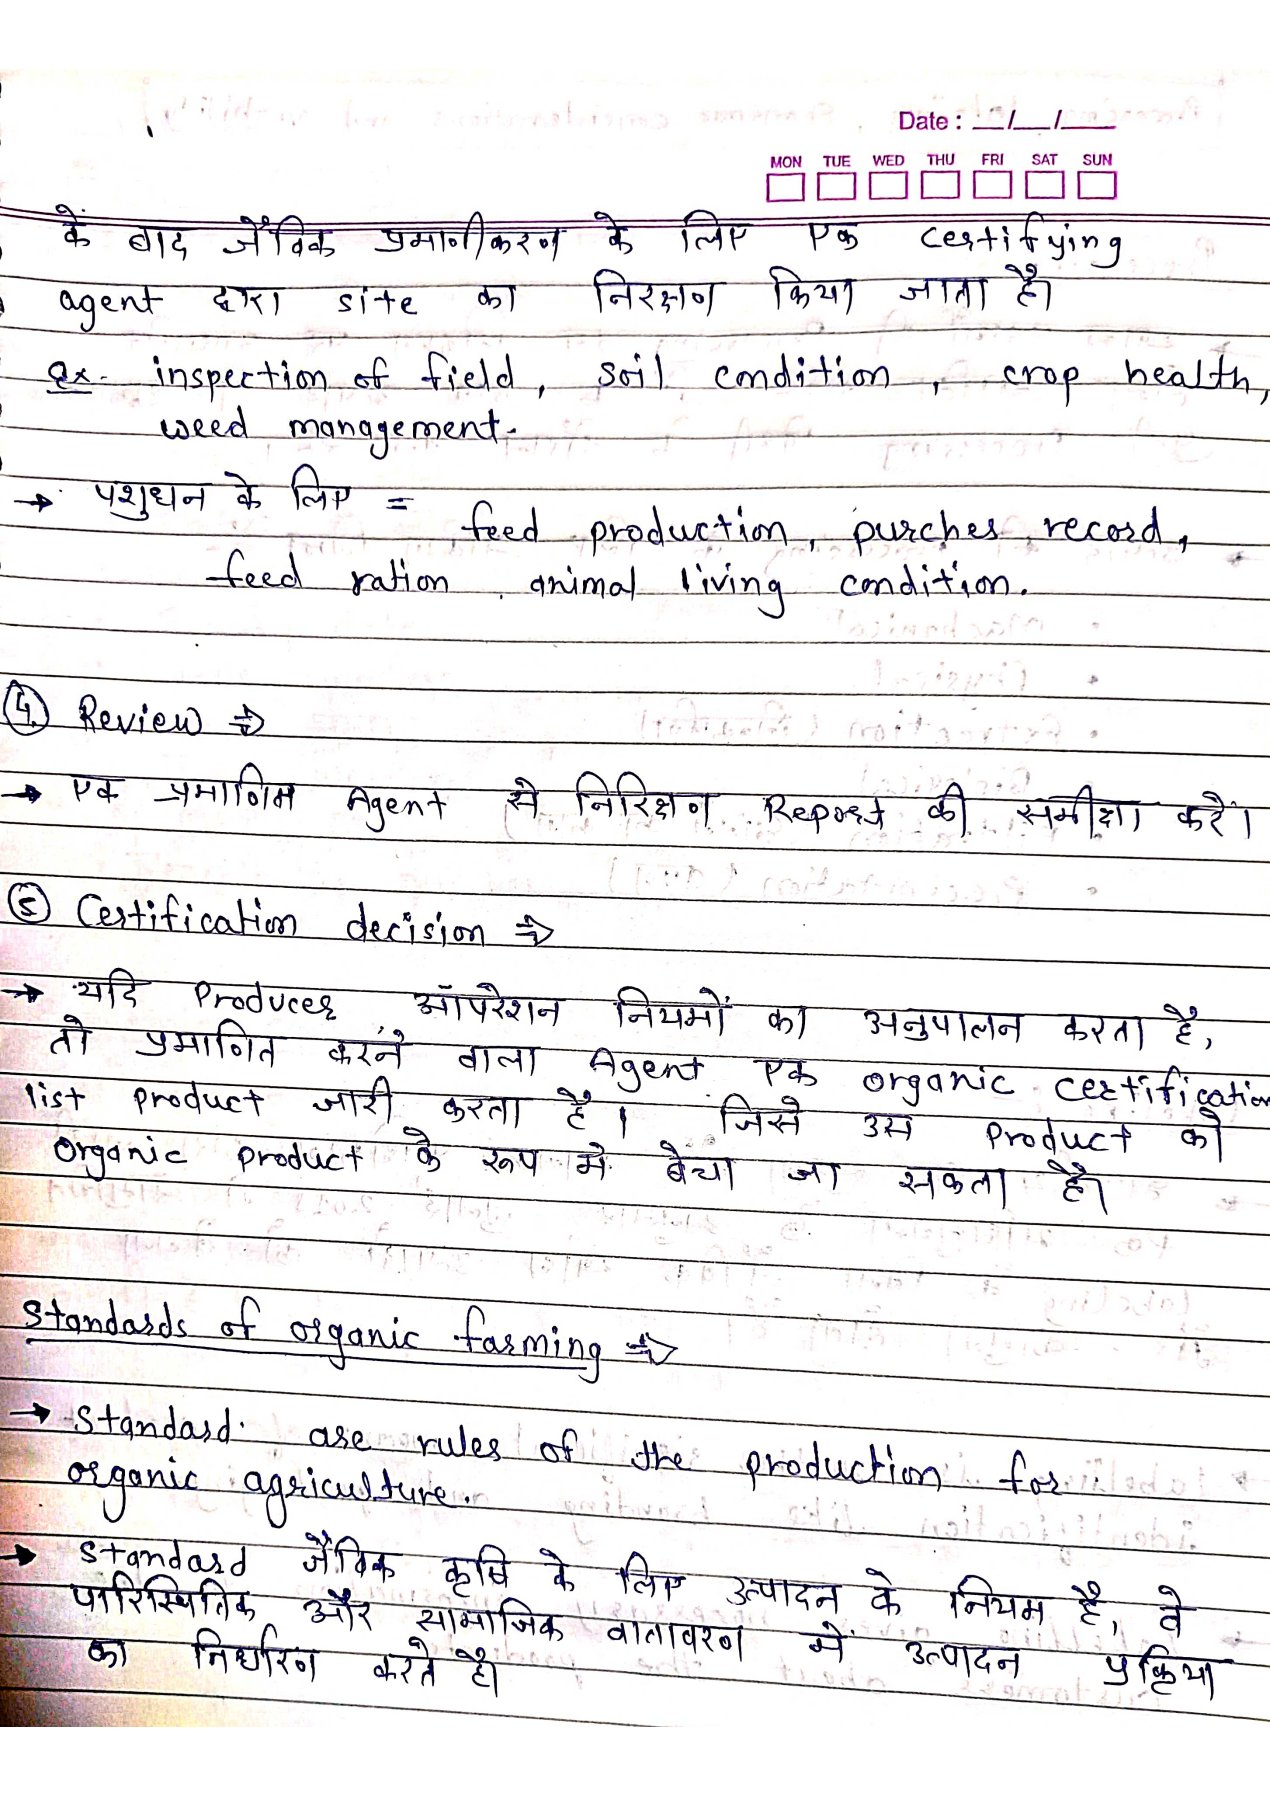 Date : __/__/____
MON TUE WED THU FRI SAT SUN
के बाद जैविक प्रमाणीकरण के लिए एक certifying
agent द्वारा site का निरक्षण किया जाता है।
ex- inspection of field, soil condition, crop health,
weed management.
→ पशुधन के लिए = feed production, purches record,
feed ration, animal living condition.
④ Review ⇒
→ एक प्रमाणित Agent से निरिक्षण Report की समीक्षा करें।
⑤ Certification decision ⇒
→ यदि Producer ऑपरेशन नियमों का अनुपालन करता है,
तो प्रमाणित करने वाला Agent एक organic certification
list product जारी करता है। जिसे उस product को
organic product के रूप मे बेचा जा सकता है।
Standards of organic farming ⇒
→ Standard are rules of the production for
organic agriculture.
→ standard जैविक कृषि के लिए उत्पादन के नियम है, वे
पारिस्थितिक और सामाजिक वातावरण में उत्पादन प्रक्रिया
का निर्धारण करते है।